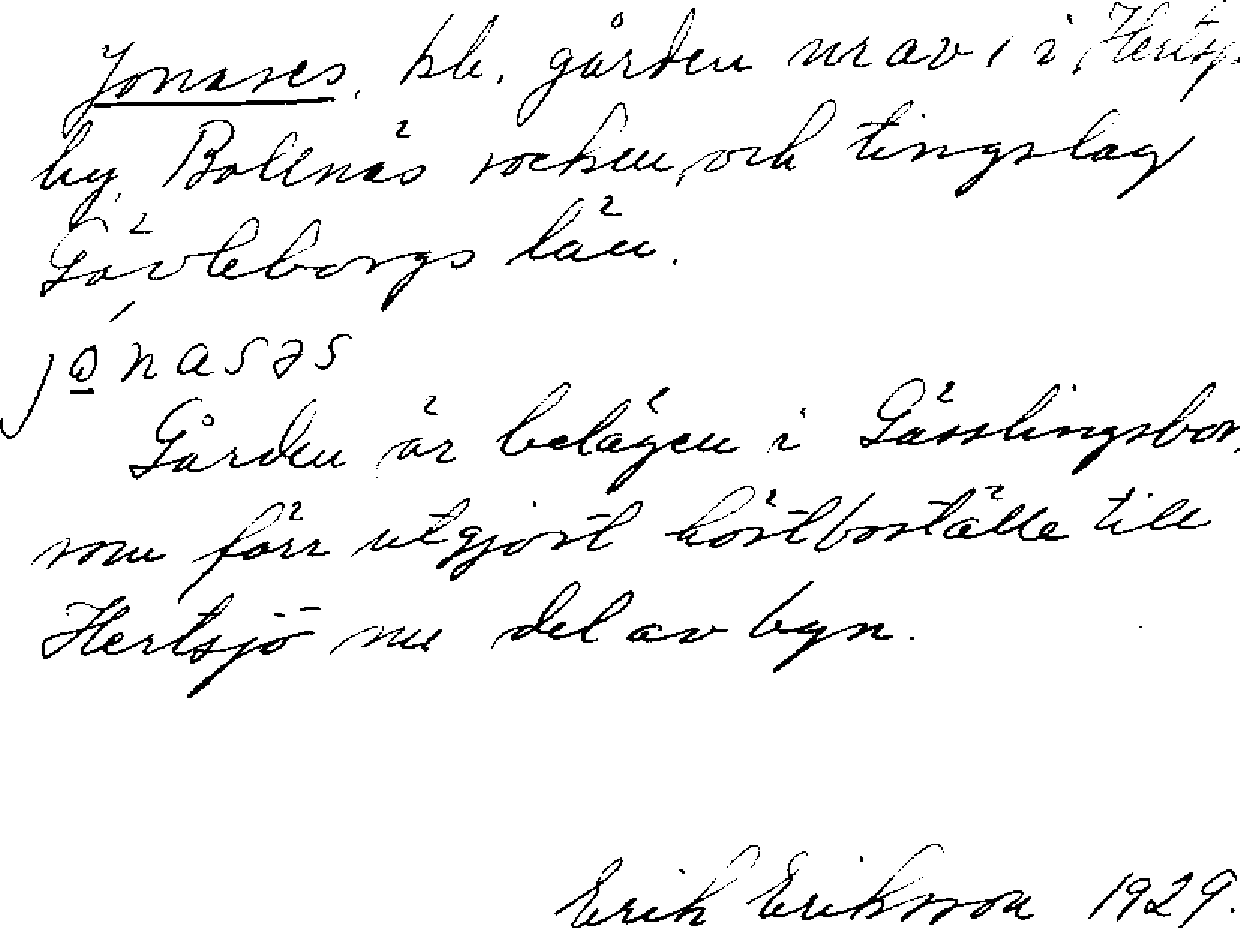 Jonases, hb. gården nr av 1 i Hertsjö
by, Bollnäs socken och tingslag
Gävleborgs län.
jó̲nasəs
Gården är belägen i Gässlingsbor,
som förr utgjort höstboställe till
Hertsjö nu del av byn.
Erik Eriksson 1929.